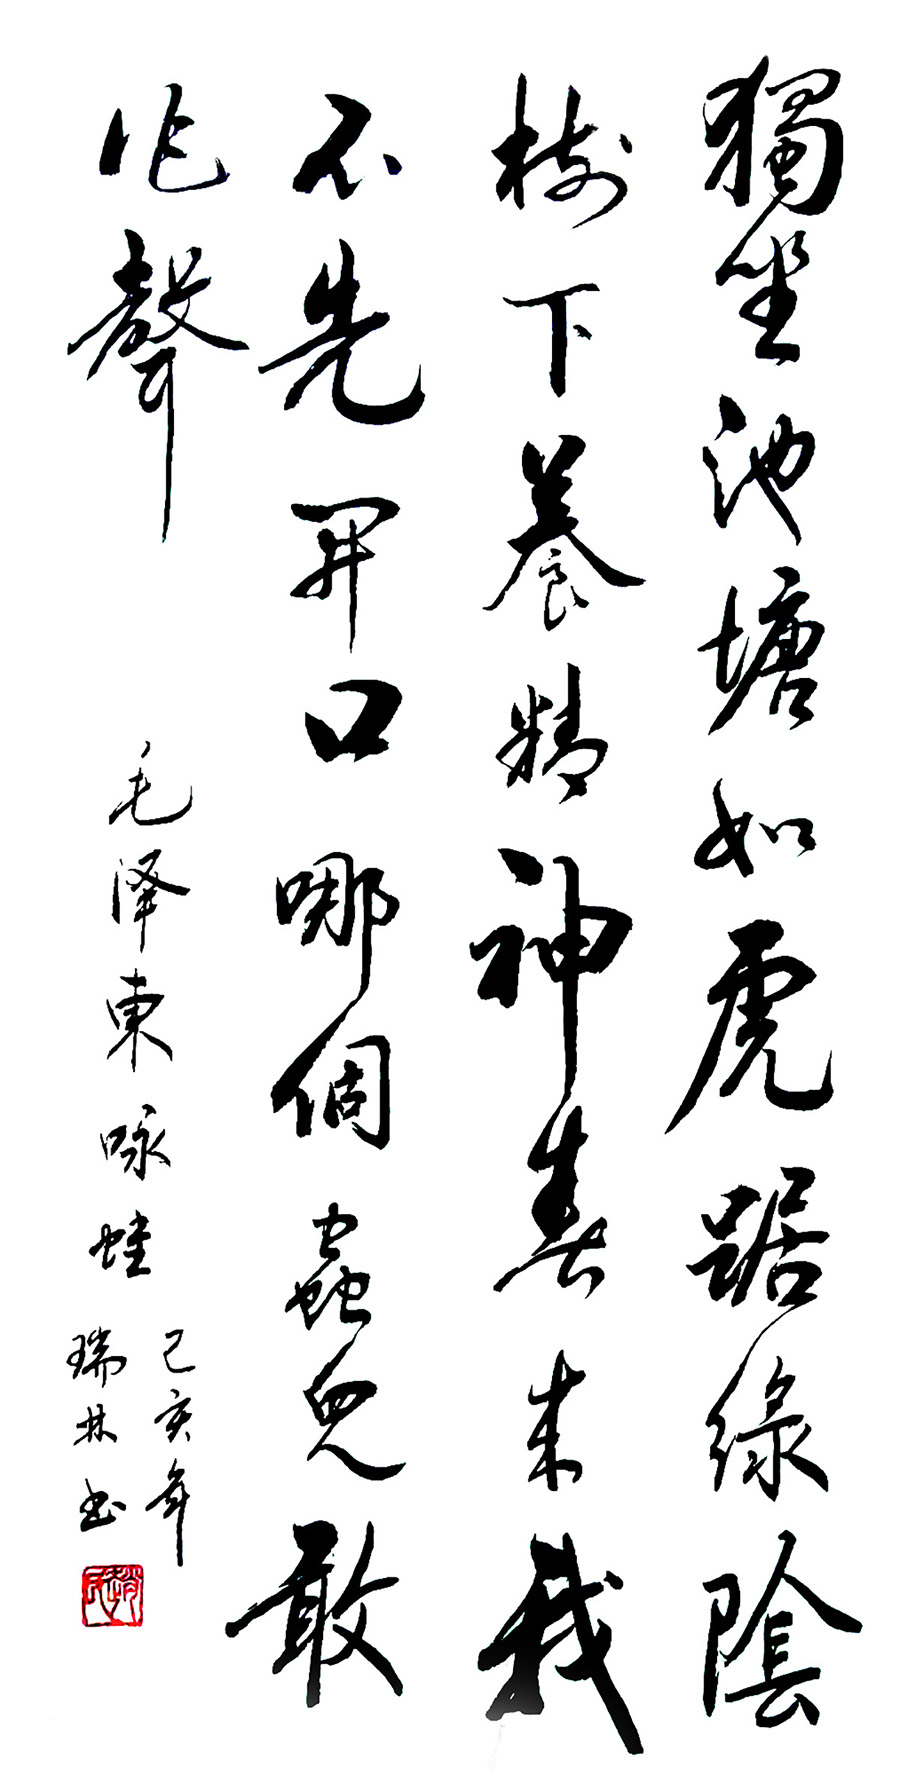 獨坐池塘如虎踞綠陰
樹下養精神春来我
不先開口哪個蟲兒敢
作聲
毛泽東咏蛙
己亥年
瑞林书